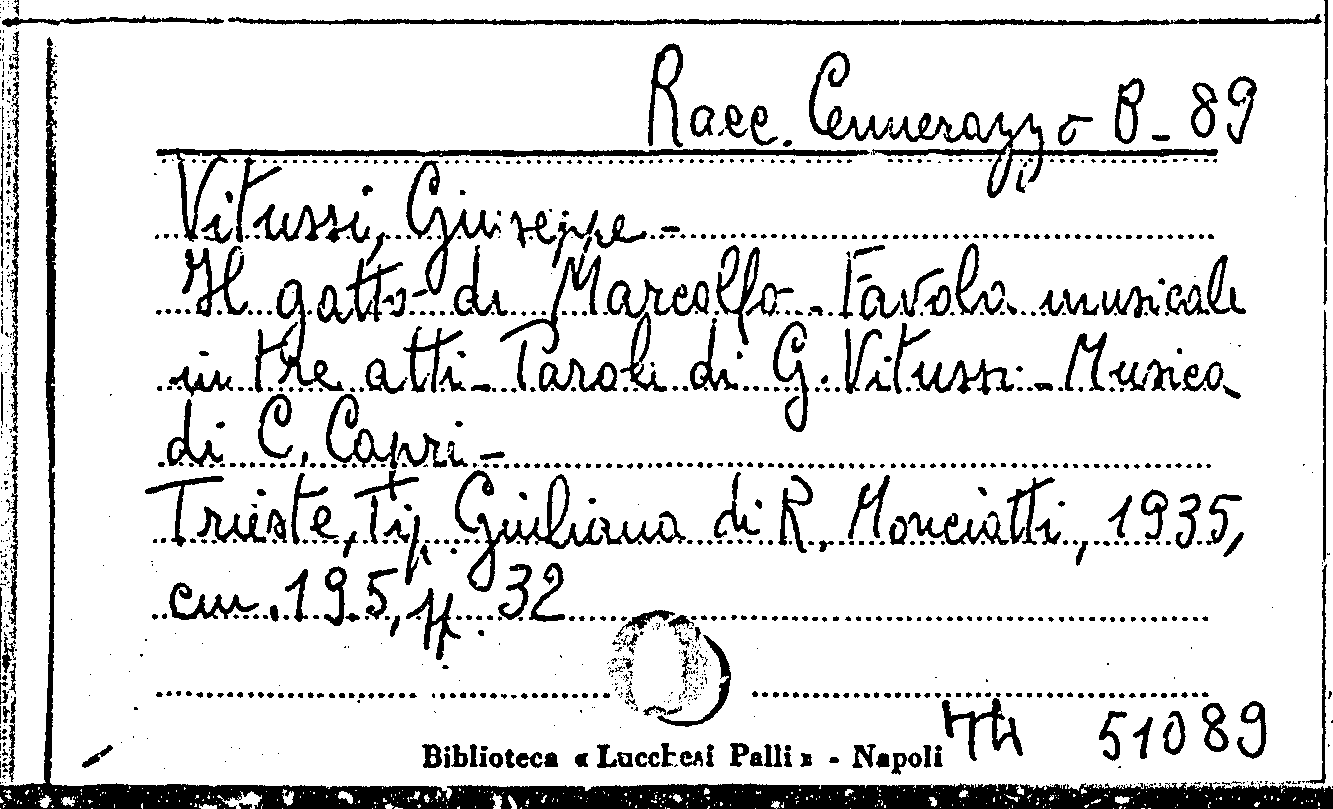 Racc. Cennerazzo B-89
Vitussi, Giuseppe -
Il gatto di Marcolfo - Favola musicale
in tre atti - Parole di G. Vitussi - Musica
di C. Capri -
Trieste, Tip. Giuliana di R. Monciatti, 1935,
cm. 19.5, pp. 32
51089
Biblioteca « Lucchesi Palli » - Napoli